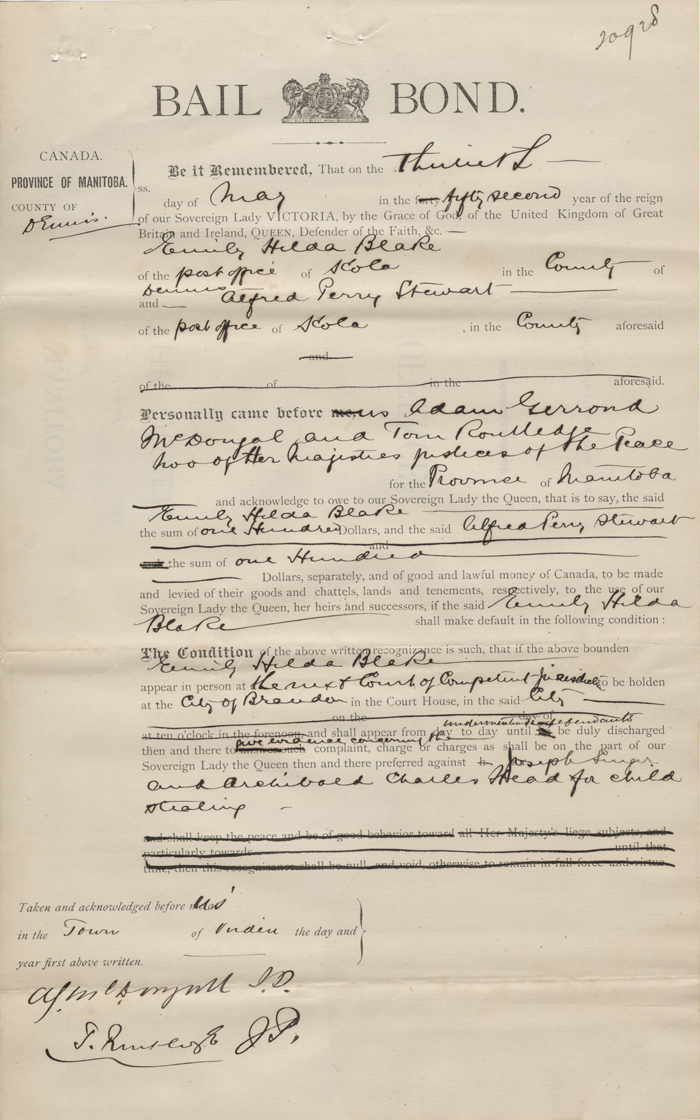 20928
BAIL BOND.
CANADA.
PROVINCE OF MANITOBA.
COUNTY OF
Dennis.
ss.
Be it Remembered, That on the
day of May in the forty fifty second year of the reign
of our Sovereign Lady VICTORIA, by the Grace of God, of the United Kingdom of Great
Britain and Ireland, QUEEN, Defender of the Faith, &c. —
Emily Hilda Blake
of the post office of Kola in the County of
Dennis
and — Alfred Perry Stewart
of the post office of Kola , in the County aforesaid
and
of the of in the aforesaid.
Personally came before me, us Adam Gerrond
McDougal and Tom Routledge
two of Her Majesties justices of the Peace
for the Province of Manitoba
and acknowledge to owe to our Sovereign Lady the Queen, that is to say, the said
Emily Hilda Blake
the sum of one Hundred Dollars, and the said Alfred Perry Stewart
and
the sum of one Hundred
Dollars, separately, and of good and lawful money of Canada, to be made
and levied of their goods and chattels, lands and tenements, respectively, to the use of our
Sovereign Lady the Queen, her heirs and successors, if the said Emily Hilda
Blake shall make default in the following condition :
The Condition of the above written recognizance is such, that if the above bounden
Emily Hilda Blake
appear in person at the next Court of Competent jurisdiction to be holden
at the City of Brandon in the Court House, in the said City
on the day of
at ten o'clock in the forenoon, and shall appear from day to day until be duly discharged
give evidence concerning the
then and there to answer such complaint, charge or charges as shall be on the part of our
Sovereign Lady the Queen then and there preferred against Joseph Singer
and Archibald Charles Head for child
stealing —
and shall keep the peace and be of good behavior toward all Her Majesty's liege subjects, and
particularly towards until that
time, then this recognizance shall be null, and void, otherwise to remain in full force and virtue.
Taken and acknowledged before me at us
in the Town of Virden the day and
year first above written.
J.P.
J.P.